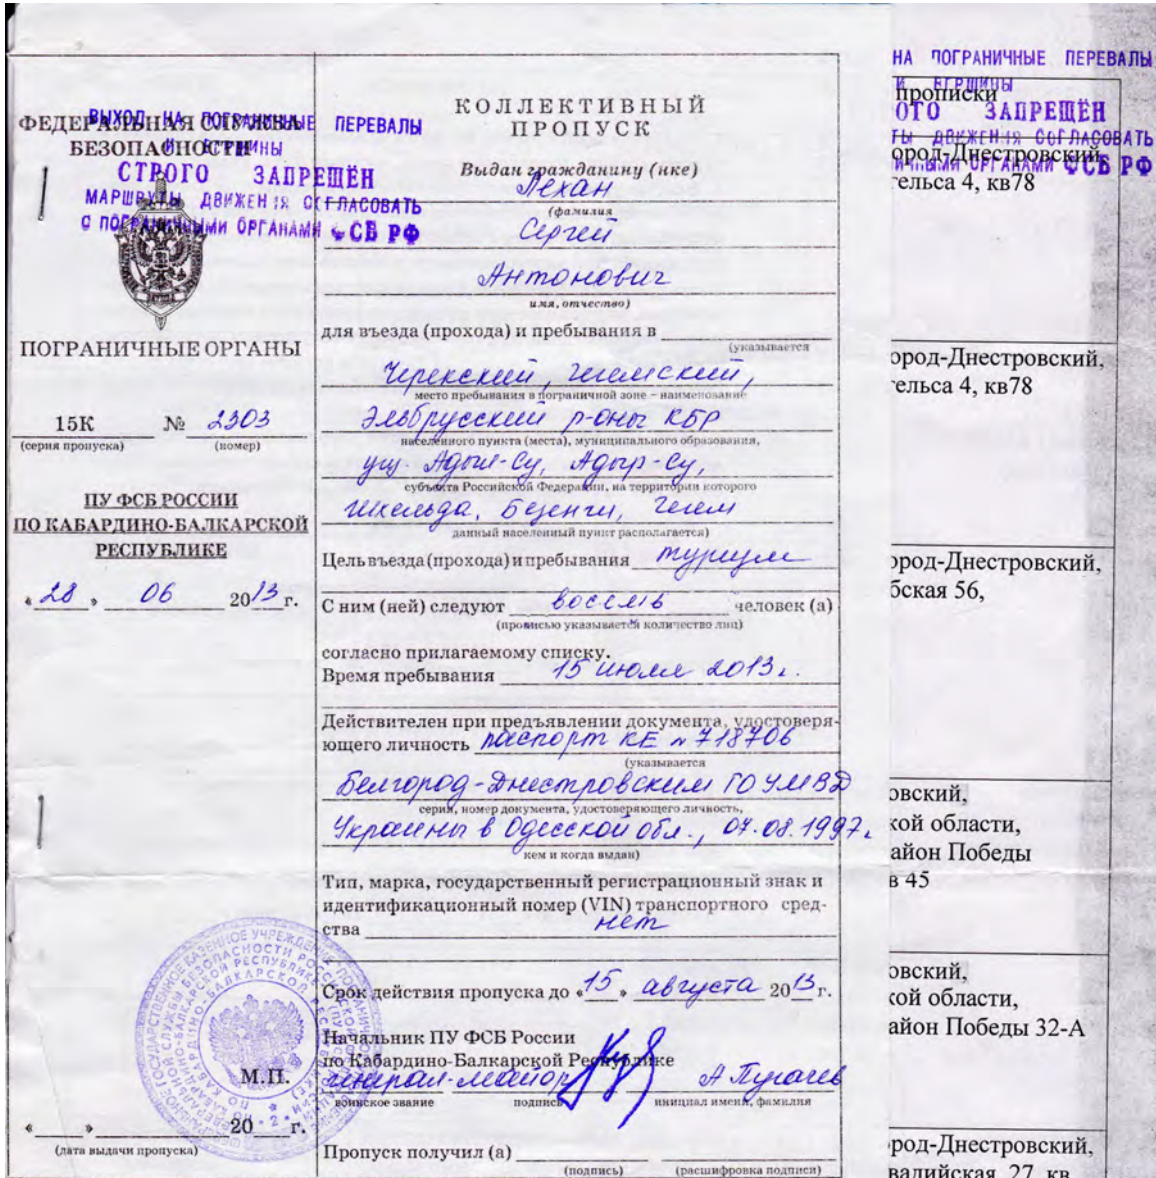 ФЕДЕРАЛЬНАЯ СЛУЖБА
БЕЗОПАСНОСТИ
ВЫХОД НА ПОГРАНИЧНЫЕ ПЕРЕВАЛЫ
И ВЕРШИНЫ
СТРОГО ЗАПРЕЩЁН
МАРШРУТЫ ДВИЖЕНИЯ СОГЛАСОВАТЬ
С ПОГРАНИЧНЫМИ ОРГАНАМИ ФСБ РФ
ПОГРАНИЧНЫЕ ОРГАНЫ
15К № 2303
(серия пропуска) (номер)
ПУ ФСБ РОССИИ
ПО КАБАРДИНО-БАЛКАРСКОЙ
РЕСПУБЛИКЕ
«28» 06 2013г.
М.П.
« » 20 г.
(дата выдачи пропуска)
КОЛЛЕКТИВНЫЙ
ПРОПУСК
Выдан гражданину (нке)
Лехан
(фамилия
Сергей
Антонович
имя, отчество)
для въезда (прохода) и пребывания в
(указывается
Черекский, Чегемский,
место пребывания в пограничной зоне – наименование
Эльбрусский р-оны КБР
населённого пункта (места), муниципального образования,
ущ. Адыл-Су, Адыр-Су,
субъекта Российской Федерации, на территории которого
Шхельда, Безенги, Чегем
данный населенный пункт располагается)
Цель въезда (прохода) и пребывания туризм
С ним (ней) следуют восемь человек (а)
(прописью указывается количество лиц)
согласно прилагаемому списку.
Время пребывания 15 июля 2013г.
Действителен при предъявлении документа, удостоверя-
ющего личность паспорт КЕ № 718706
(указывается
Белгород-Днестровским ГО УМВД
серия, номер документа, удостоверяющего личность,
Украины в Одесской обл., 07.08.1997г.
кем и когда выдан)
Тип, марка, государственный регистрационный знак и
идентификационный номер (VIN) транспортного сред-
ства нет
Срок действия пропуска до «15» августа 2013г.
Начальник ПУ ФСБ России
по Кабардино-Балкарской Республике
генерал-майор А Пугачев
воинское звание подпись инициал имени, фамилия
Пропуск получил (а)
(подпись) (расшифровка подписи)
НА ПОГРАНИЧНЫЕ ПЕРЕВАЛЫ
И ВЕРШИНЫ
прописки
ОГО ЗАПРЕЩЁН
ТЫ ДВИЖЕНИЯ СОГЛАСОВАТЬ
ород-Днестровский,
ИЧНЫМИ ОРГАНАМИ ФСБ РФ
гельса 4, кв78
ород-Днестровский,
гельса 4, кв78
ород-Днестровский,
бская 56,
овский,
кой области,
айон Победы
в 45
овский,
кой области,
айон Победы 32-А
род-Днестровский,
вадийская, 27, кв